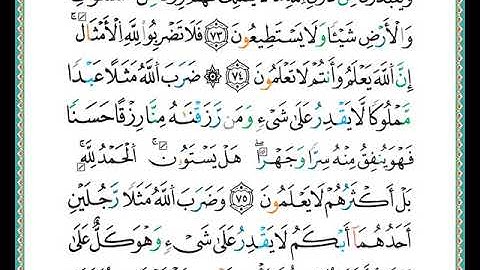 وَالْأَرْضِ شَيْـًٔا وَلَا يَسْتَطِيعُونَ ۝٧٣ فَلَا تَضْرِبُوا۟ لِلَّهِ الْأَمْثَالَ ۚ
إِنَّ اللَّهَ يَعْلَمُ وَأَنتُمْ لَا تَعْلَمُونَ ۝٧٤ ۞ ضَرَبَ اللَّهُ مَثَلًا عَبْدًا
مَّمْلُوكًا لَّا يَقْدِرُ عَلَىٰ شَىْءٍ وَمَن رَّزَقْنَـٰهُ مِنَّا رِزْقًا حَسَنًا
فَهُوَ يُنفِقُ مِنْهُ سِرًّا وَجَهْرًا ۖ هَلْ يَسْتَوُۥنَ ۚ الْحَمْدُ لِلَّهِ ۚ
بَلْ أَكْثَرُهُمْ لَا يَعْلَمُونَ ۝٧٥ وَضَرَبَ اللَّهُ مَثَلًا رَّجُلَيْنِ
أَحَدُهُمَآ أَبْكَمُ لَا يَقْدِرُ عَلَىٰ شَىْءٍ وَهُوَ كَلٌّ عَلَىٰ